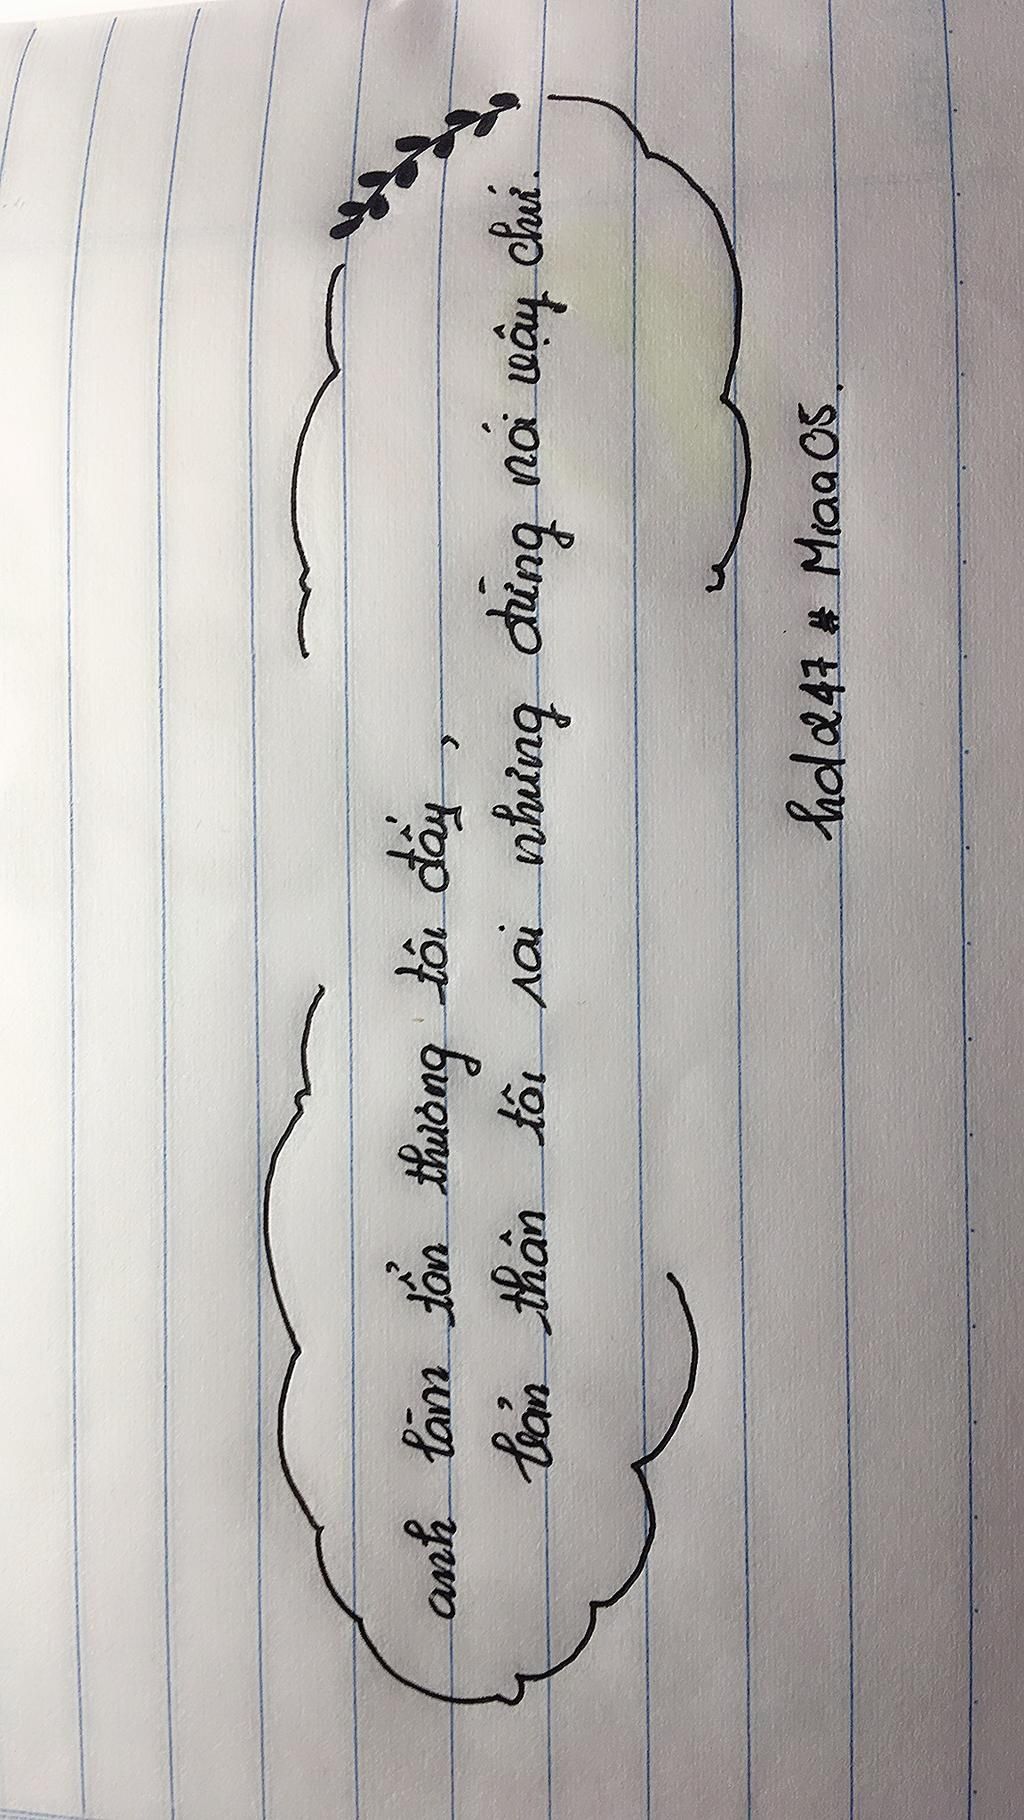 anh làm tổn thương tôi đấy,
bản thân tôi sai nhưng đừng nói vậy chứ.
hd247 # Miaa05.